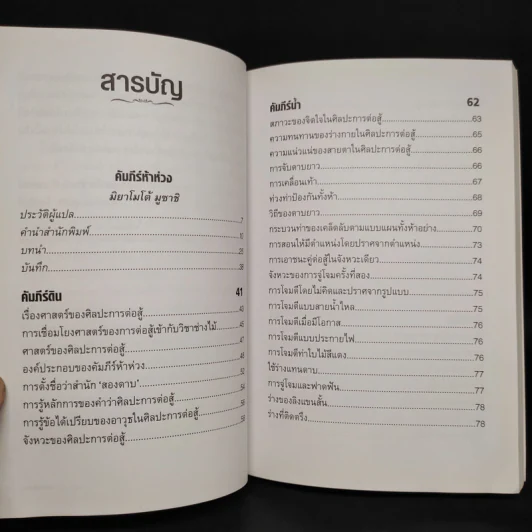 สารบัญ
คัมภีร์ห้าห่วง
มิยาโมโต้ มูซาชิ
ประวัติผู้แปล 7
คำนำสำนักพิมพ์
บทนำ
บันทึก
คัมภีร์ดิน 41
เรื่องศาสตร์ของศิลปะการต่อสู้
การเชื่อมโยงศาสตร์ของการต่อสู้เข้ากับวิชาช่างไม้
ศาสตร์ของศิลปะการต่อสู้
องค์ประกอบของคัมภีร์ห้าห่วง
การตั้งชื่อว่าสำนัก 'สองดาบ'
การรู้หลักการของคำว่าศิลปะการต่อสู้
การรู้ข้อได้เปรียบของอาวุธในศิลปะการต่อสู้
จังหวะของศิลปะการต่อสู้
คัมภีร์น้ำ 62
สภาวะของจิตใจในศิลปะการต่อสู้ 63
ความทนทานของร่างกายในศิลปะการต่อสู้ 65
ความแน่วแน่ของสายตาในศิลปะการต่อสู้ 66
การจับดาบยาว 66
การเคลื่อนเท้า 67
ท่วงท่าป้องกันทั้งห้า 68
วิถีของดาบยาว 69
กระบวนท่าของเคล็ดลับตามแบบแผนทั้งห้าอย่าง 70
การสอนให้มีตำแหน่งโดยปราศจากตำแหน่ง 73
การเอาชนะคู่ต่อสู้ในจังหวะเดียว 74
จังหวะของการจู่โจมครั้งที่สอง 74
การโจมตีโดยไม่คิดและปราศจากรูปแบบ 75
การโจมตีแบบสายน้ำไหล 75
การโจมตีเมื่อมีโอกาส 76
การโจมตีแบบประกายไฟ 76
การโจมตีท่าใบไม้สีแดง 76
ใช้ร่างแทนดาบ 77
การจู่โจมและฟาดฟัน 77
ร่างของลิงแขนสั้น 78
ร่างที่ติดตรึง 78